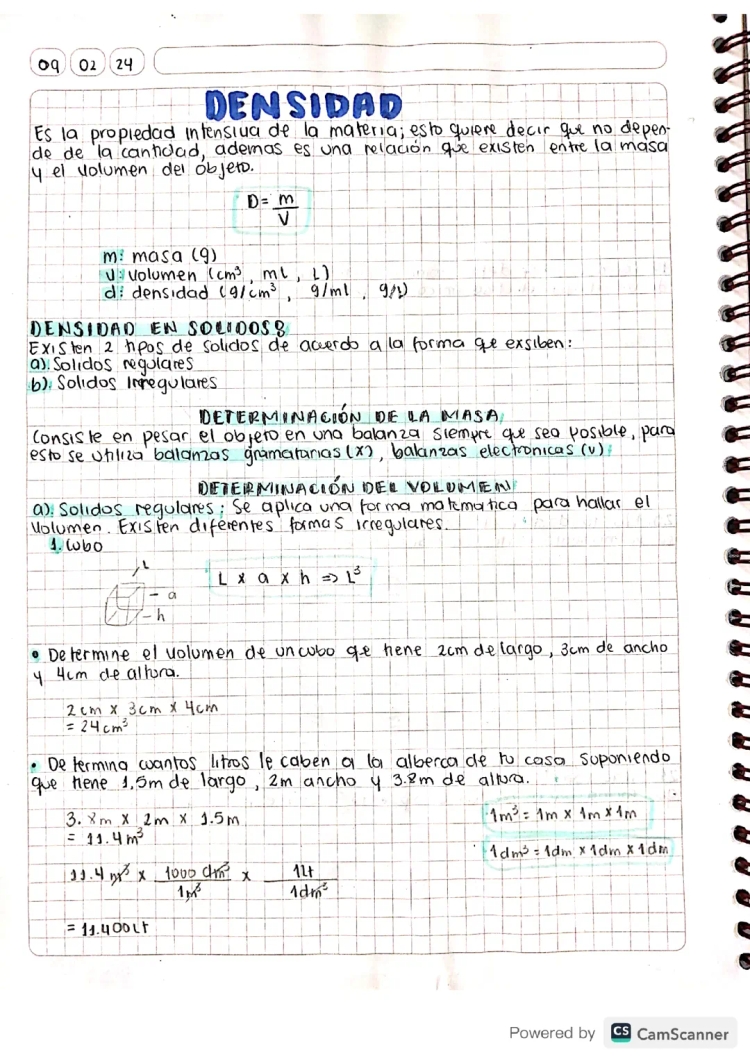 09 02 24
DENSIDAD
Es la propiedad intensiva de la materia; esto quiere decir que no depen-
de de la cantidad, ademas es una relación que existen entre la masa
y el volumen del objeto.
D = m
V
m: masa (g)
v: volumen (cm³, ml, L)
d: densidad (g/cm³, g/ml, g/L)
DENSIDAD EN SOLIDOS:
Existen 2 tipos de solidos de acuerdo a la forma qe exsiben:
a). Solidos regulares
b). Solidos Irregulares
DETERMINACIÓN DE LA MASA
Consiste en pesar el objeto en una balanza siempre que sea posible, para
esto se utiliza balanzas gramatarias (x), balanzas electronicas (v).
DETERMINACIÓN DEL VOLUMEN
a). Solidos regulares: Se aplica una forma matematica para hallar el
volumen. Existen diferentes formas irregulares.
1. Cubo
L
- a
- h
L x a x h => L³
• Determine el volumen de un cubo qe tiene 2cm de largo, 3cm de ancho
y 4cm de altura.
2cm x 3cm x 4cm
= 24cm³
• Determina cuantos litros le caben a la alberca de tu casa suponiendo
que tiene 1.5m de largo, 2m ancho y 3.8m de altura.
3.8m x 2m x 1.5m
= 11.4m³
1m³ = 1m x 1m x 1m
1dm³ = 1dm x 1dm x 1dm
11.4 m³ x 1000 dm³ x 1Lt
1m³ 1dm³
= 11.400Lt
Powered by CS CamScanner